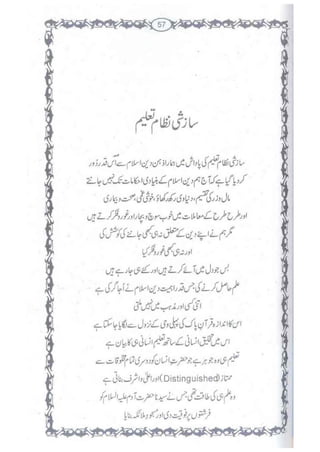 57
سازشی نظام تعلیم
سازشی نظام تعلیم کی پاداش میں ہمارا ذہن دین اسلام سے اُس قدر دُور
کردیا گیا ہے کہ آج ہم دین اسلام کے بنیادی احکامات تک نہیں جانتے
مال و زر کی تقسیم، دنیاوی رکھ رکھاؤ، خوشی غمی، صحت و بیماری
اور طرح طرح کے معاملات میں خوب سوچ و بچار اور غور و فکر کرتے ہیں
مگر ہم نے اپنے دین کے متعلق نہ ہی کبھی جاننے کی کوشش کی
اور نہ ہی کبھی غور و فکر کیا
بس جو دل میں آئے کرتے ہیں اور کئے ہی جا رہے ہیں
علم حاصل کرنے کی جس قدر اہمیت دین اسلام نے اُجاگر کی ہے
اتنی کسی اور مذہب میں نہیں ملتی
اس کا اندازہ قرآنِ پاک کی پہلی وحی کے نزول سے لگایا جاسکتا ہے
اس میں تخلیق انسانی کے ساتھ تعلیم انسانی ہی کا بیان ہے
تعلیم ہی وہ جوہر ہے جو حضرتِ انسان کو دوسری تمام مخلوقات سے
ممتاز (Distinguished) اور اعلیٰ و اشرف بناتی ہے
وہ علم ہی کی طاقت تھی جس نے سیدنا حضرت آدم علیہ السلام کو
فرشتوں پر فوقیت دی اور مسجود ملائکہ بنایا